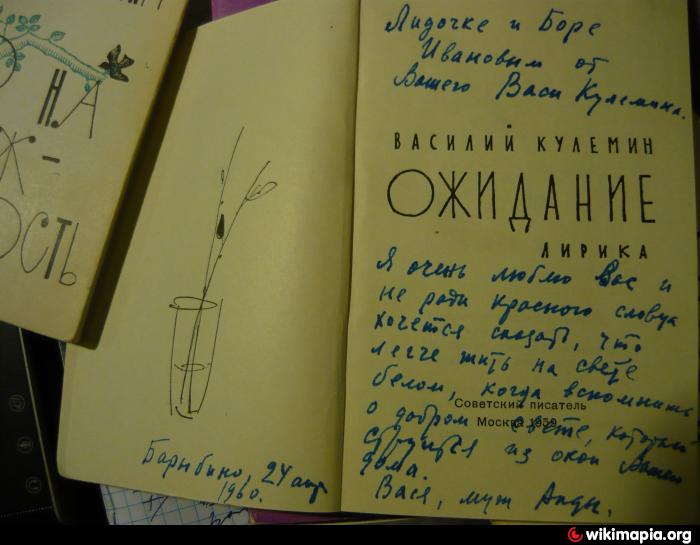 НА
Ж-
ОСТЬ
Лидочке и Боре
Ивановым от
Вашего Васи Кулемина.
ВАСИЛИЙ КУЛЕМИН
ОЖИДАНИЕ
ЛИРИКА
Я очень люблю Вас и
не ради красного словца
хочется сказать, что
легче жить на свете
белом, когда вспомнишь
о добром свете, который
струится из окон Вашего
дома.
Вася, муж
Советский писатель
Москва 1959
Барыбино, 24
1960.
wikimapia.org